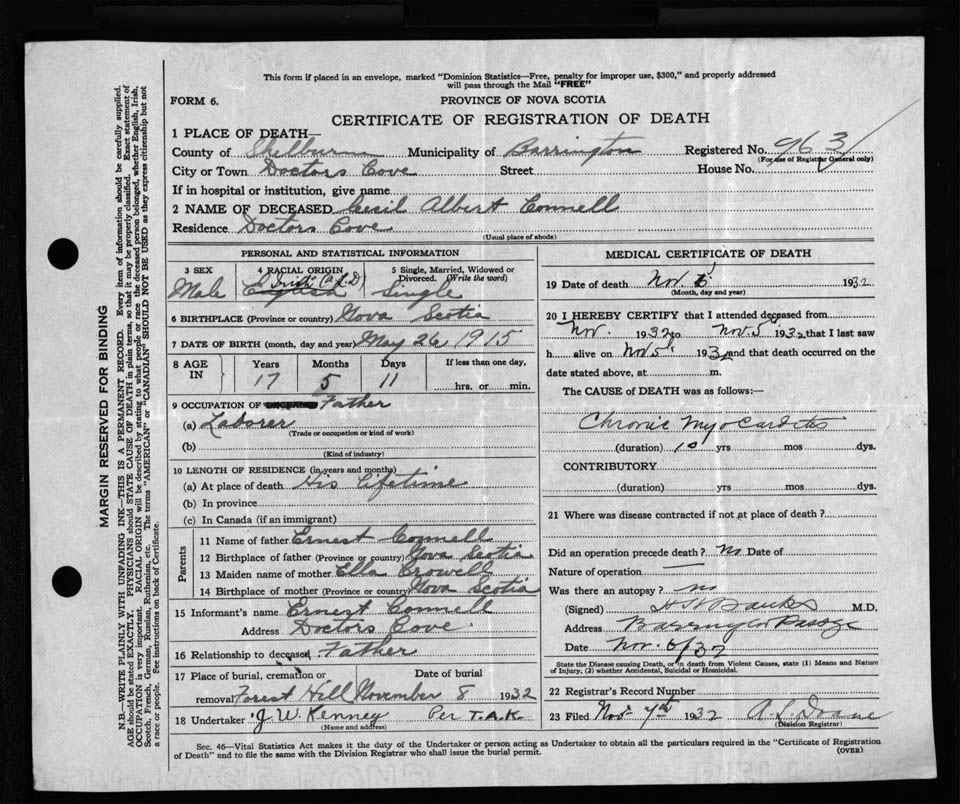 This form if placed in an envelope, marked "Dominion Statistics—Free, penalty for improper use, $300," and properly addressed
will pass through the Mail "FREE"
FORM 6.
PROVINCE OF NOVA SCOTIA
CERTIFICATE OF REGISTRATION OF DEATH
1 PLACE OF DEATH—
County of Shelburn Municipality of Barrington Registered No. 963
(For use of Registrar General only)
City or Town Doctors Cove Street House No.
If in hospital or institution, give name
2 NAME OF DECEASED Cecil Albert Connell
Residence Doctors Cove
(Usual place of abode)
PERSONAL AND STATISTICAL INFORMATION
3 SEX 4 RACIAL ORIGIN 5 Single, Married, Widowed or
Divorced. (Write the word)
Irish (A.L.D)
Male English Single
6 BIRTHPLACE (Province or country) Nova Scotia
7 DATE OF BIRTH (month, day and year) May 26 1915
8 AGE IN Years Months Days If less than one day,
17 5 11 hrs. or min.
9 OCCUPATION OF Father
(a) Laborer
(Trade or occupation or kind of work)
(b)
(Kind of industry)
10 LENGTH OF RESIDENCE (in years and months)
(a) At place of death His Lifetime
(b) In province
(c) In Canada (if an immigrant)
Parents
11 Name of father Ernest Connell
12 Birthplace of father (Province or country) Nova Scotia
13 Maiden name of mother Ella Crowell
14 Birthplace of mother (Province or country) Nova Scotia
15 Informant's name Ernest Connell
Address Doctors Cove
16 Relationship to deceased Father
17 Place of burial, cremation or Date of burial
removal Forest Hill November 8 1932
18 Undertaker J. W. Kenney Per T.A.K
(Name and address)
MEDICAL CERTIFICATE OF DEATH
19 Date of death Nov. 1932
(Month, day and year)
20 I HEREBY CERTIFY that I attended deceased from
Nov. 1932 to Nov 5 1932 that I last saw
h alive on Nov 5 1932 and that death occurred on the
date stated above, at m.
The CAUSE of DEATH was as follows:—
Chronic Myocarditis
(duration) 10 yrs mos dys.
CONTRIBUTORY
(duration) yrs mos dys.
21 Where was disease contracted if not at place of death?
Did an operation precede death? No Date of
Nature of operation —
Was there an autopsy? no
(Signed) Banks M.D.
Address Barrington Passage
Date Nov. 6/32
State the Disease causing Death, or in death from Violent Causes, state (1) Means and Nature
of Injury, (2) whether Accidental, Suicidal or Homicidal.
22 Registrar's Record Number
23 Filed Nov 7th 1932 A L Doane
(Division Registrar)
Sec. 46—Vital Statistics Act makes it the duty of the Undertaker or person acting as Undertaker to obtain all the particulars required in the "Certificate of Registration
of Death" and to file the same with the Division Registrar who shall issue the burial permit. (OVER)
MARGIN RESERVED FOR BINDING
N.B.—WRITE PLAINLY WITH UNFADING INK—THIS IS A PERMANENT RECORD. Every item of information should be carefully supplied.
AGE should be stated EXACTLY. PHYSICIANS should STATE CAUSE OF DEATH in plain terms, so that it may be properly classified. Exact statement of
OCCUPATION is very important. RACIAL ORIGIN will be described by stating to what people or race the deceased person belonged, whether English, Irish,
Scotch, French, German, Russian, Ruthenian, etc. The terms "AMERICAN" or "CANADIAN" SHOULD NOT BE USED as they express citizenship but not
a race or people. See instructions on back of Certificate.